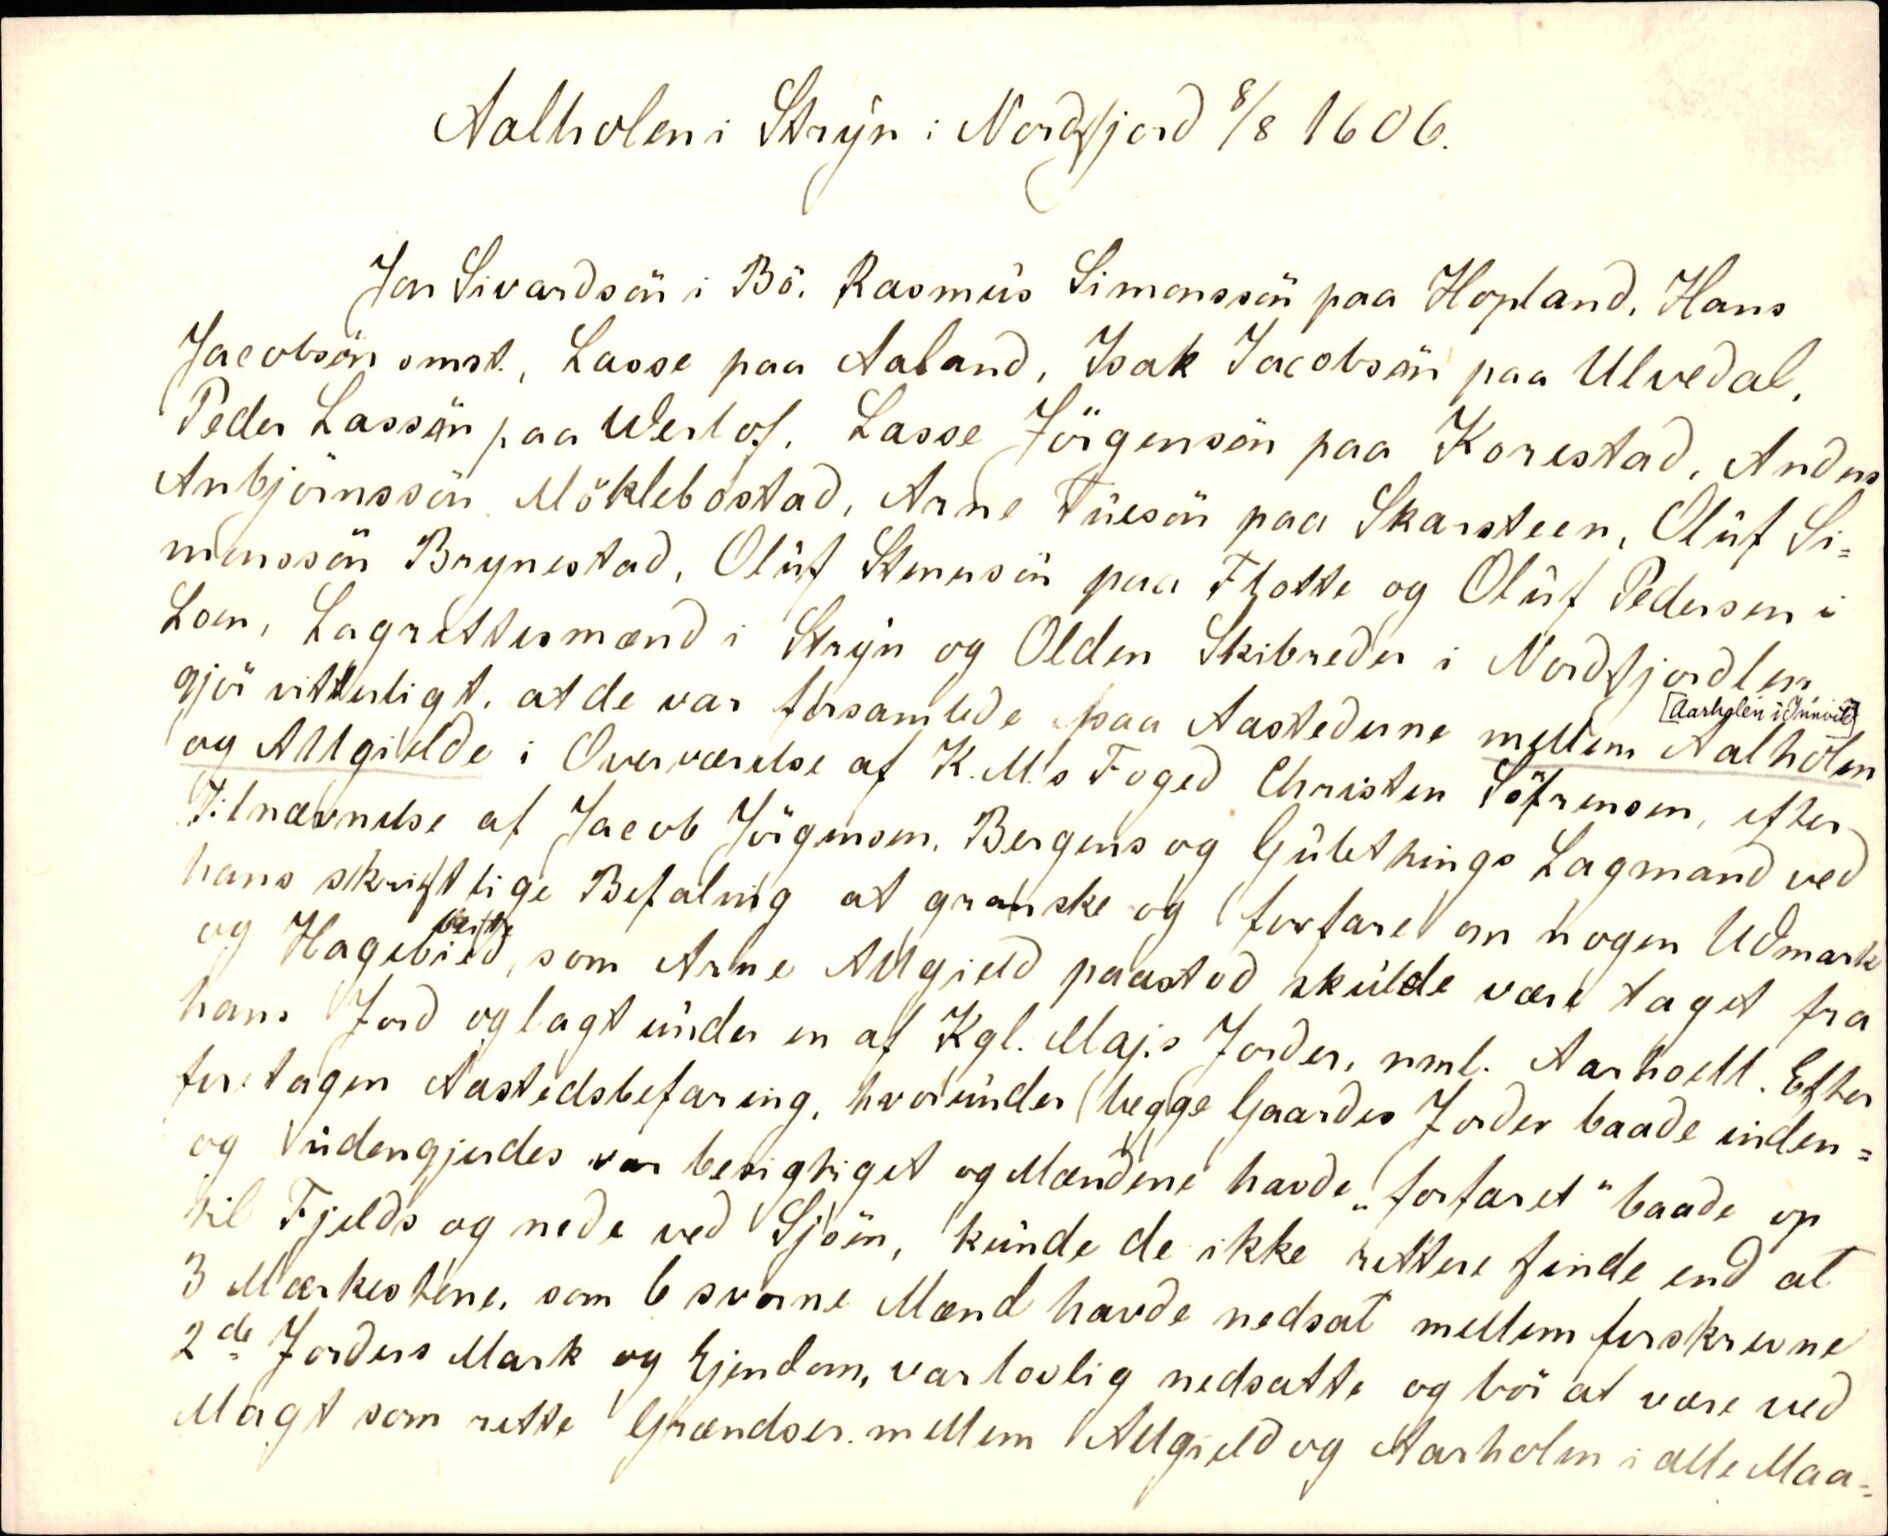 Aalholen i Strÿn i Nordfjord 8/8 1606.
Jon Sivardsön i Bö. Rasmus Simonssön paa Hopland, Hans
Jacobsön smst., Lasse paa Aaland, Isak Jacobsön paa Ulvedal,
Peder Lassön paa Werlof, Lasse Jörgensön paa Korestad, Anders
Anbjörnssön Möklebostad, Arne Tuesön paa Skarsteen, Oluf Si=
monssön Brynestad, Oluf Stenersön paa Flotte og Oluf Pedersen i
Loen, Lagrettesmænd i Strÿn og Olden Skibreder i Nordfjordlen
gjör vitterligt, at de var forsamlede paa Aastederne mellem Aalholen
[Aarholen i Innvik]
og Allgielde i Overværelse af K. M.s Foged Christen Söfrensen, efter
Tilnævnelse af Jacob Jörgensen, Bergens og Gulethings Lagmand ved
hans skriftlige Befalnig at granske og forfare om nogen Udmark
og Hagebied, som Arne Allgield paastod skulde være taget fra
hans Jord og lagt under en af Kgl. Maj.s Jorder, nml. Aarhoell. Efter
foretagen Aastedsbefaring, hvorunder begge Gaardes Jorder baade inden=
og udengjerdes var besigtiget og Mændene havde "forfaret" baade op
til Fjelds og nede ved Sjöen, kunde de ikke rettere finde end at
3 Mærkestene, som 6 svorne Mænd havde nedsat mellem forskrevne
2de Jorders Mark og Ejendom, var lovlig nedsatte og bör at være ved
Magt som rette Grændser mellem Allgield og Aarholen i alle Maa=